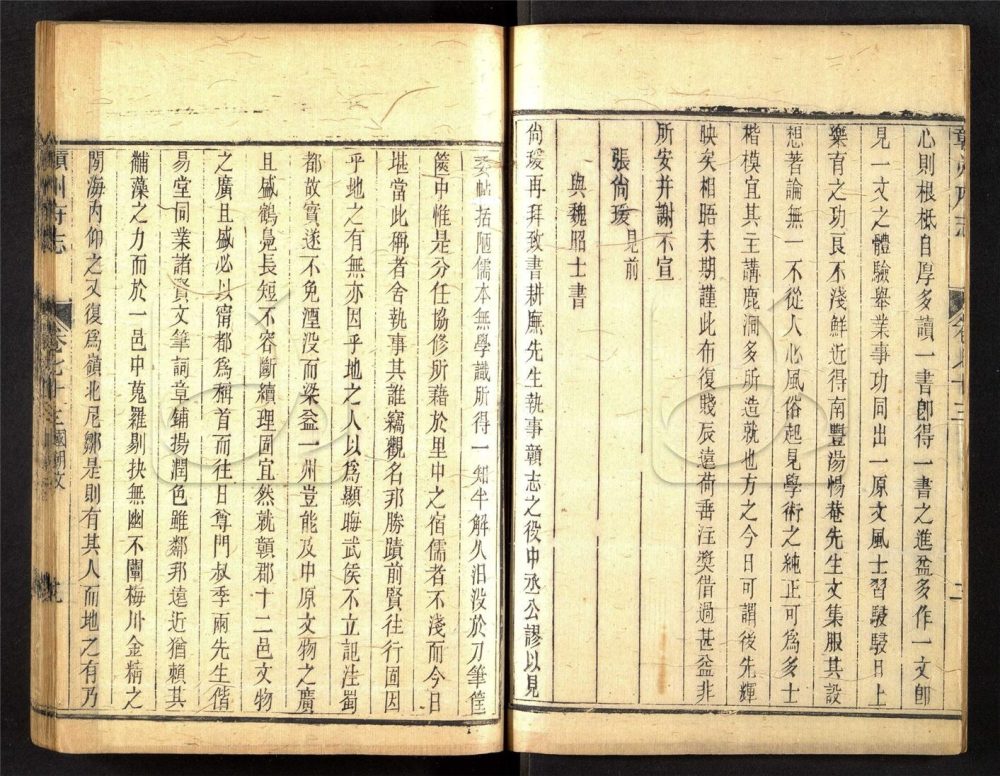 贛州府志
心則根柢自厚多讀一書卽得一書之進益多作一文卽
見一文之體驗舉業事功同出一原文風士習駸駸日上
樂育之功良不淺鮮近得南豐湯惕菴先生文集服其設
想著論無一不從人心風俗起見學術之純正可為多士
楷模宜其主講鹿洞多所造就也方之今日可謂後先輝
映矣相晤未期謹此布復賤辰遠荷垂注獎借過甚益非
所安并謝不宣
張尙瑗見前
與魏昭士書
尙瑗再拜致書耕廡先生執事贛志之役中丞公謬以見
委帖括陋儒本無學識所得一知半解久汨没於刀筆筐
篋中惟是分任協修所藉於里中之宿儒者不淺而今日
堪當此稱者舍執事其誰竊觀名邦勝蹟前賢往行固因
乎地之有無亦因乎地之人以爲顯晦武侯不立記注蜀
都故實遂不免湮没而梁益一州豈能及中原文物之廣
且盛鶴鳧長短不容斷續理固宜然就贛郡十二邑文物
之廣且盛必以甯都爲稱首而往日尊門叔季兩先生偕
易堂同業諸賢文筆詞章鋪揚潤色雖鄰邦遠近猶賴其
黼藻之力而於一邑中蒐羅剔抉無幽不闡梅川金精之
間海内仰之又復爲嶺北尼鄒是則有其人而地之有乃
贛州府志
國朝文